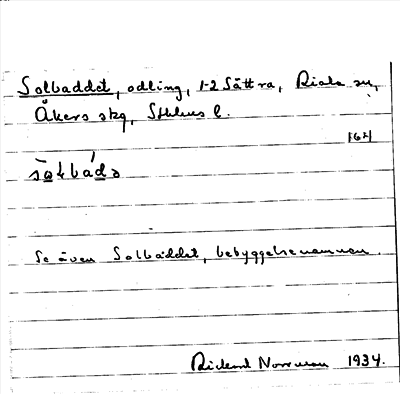 Solbaddet, odling, 1-2 Sättra, Riala sn,
Åkers skg, Sthlms l.
Se även Solbäddet, bebyggelsenamnen.
Rickard Norrman 1934.